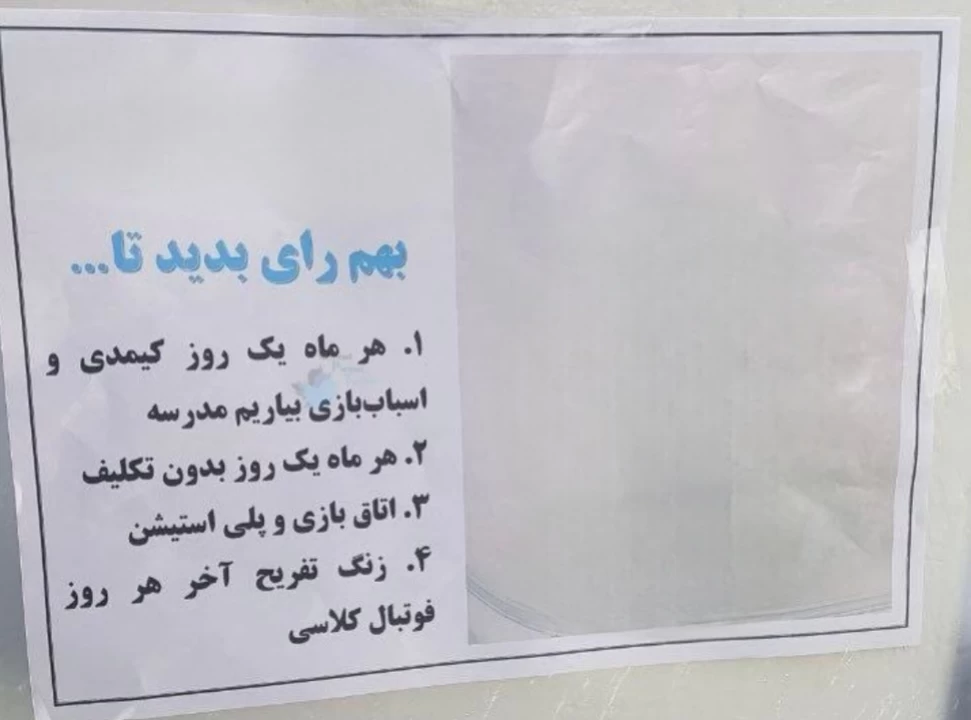 بهم رای بدید تا...
۱. هر ماه یک روز کیمدی و
اسباب‌بازی بیاریم مدرسه
۲. هر ماه یک روز بدون تکلیف
۳. اتاق بازی و پلی استیشن
۴. زنگ تفریح آخر هر روز
فوتبال کلاسی